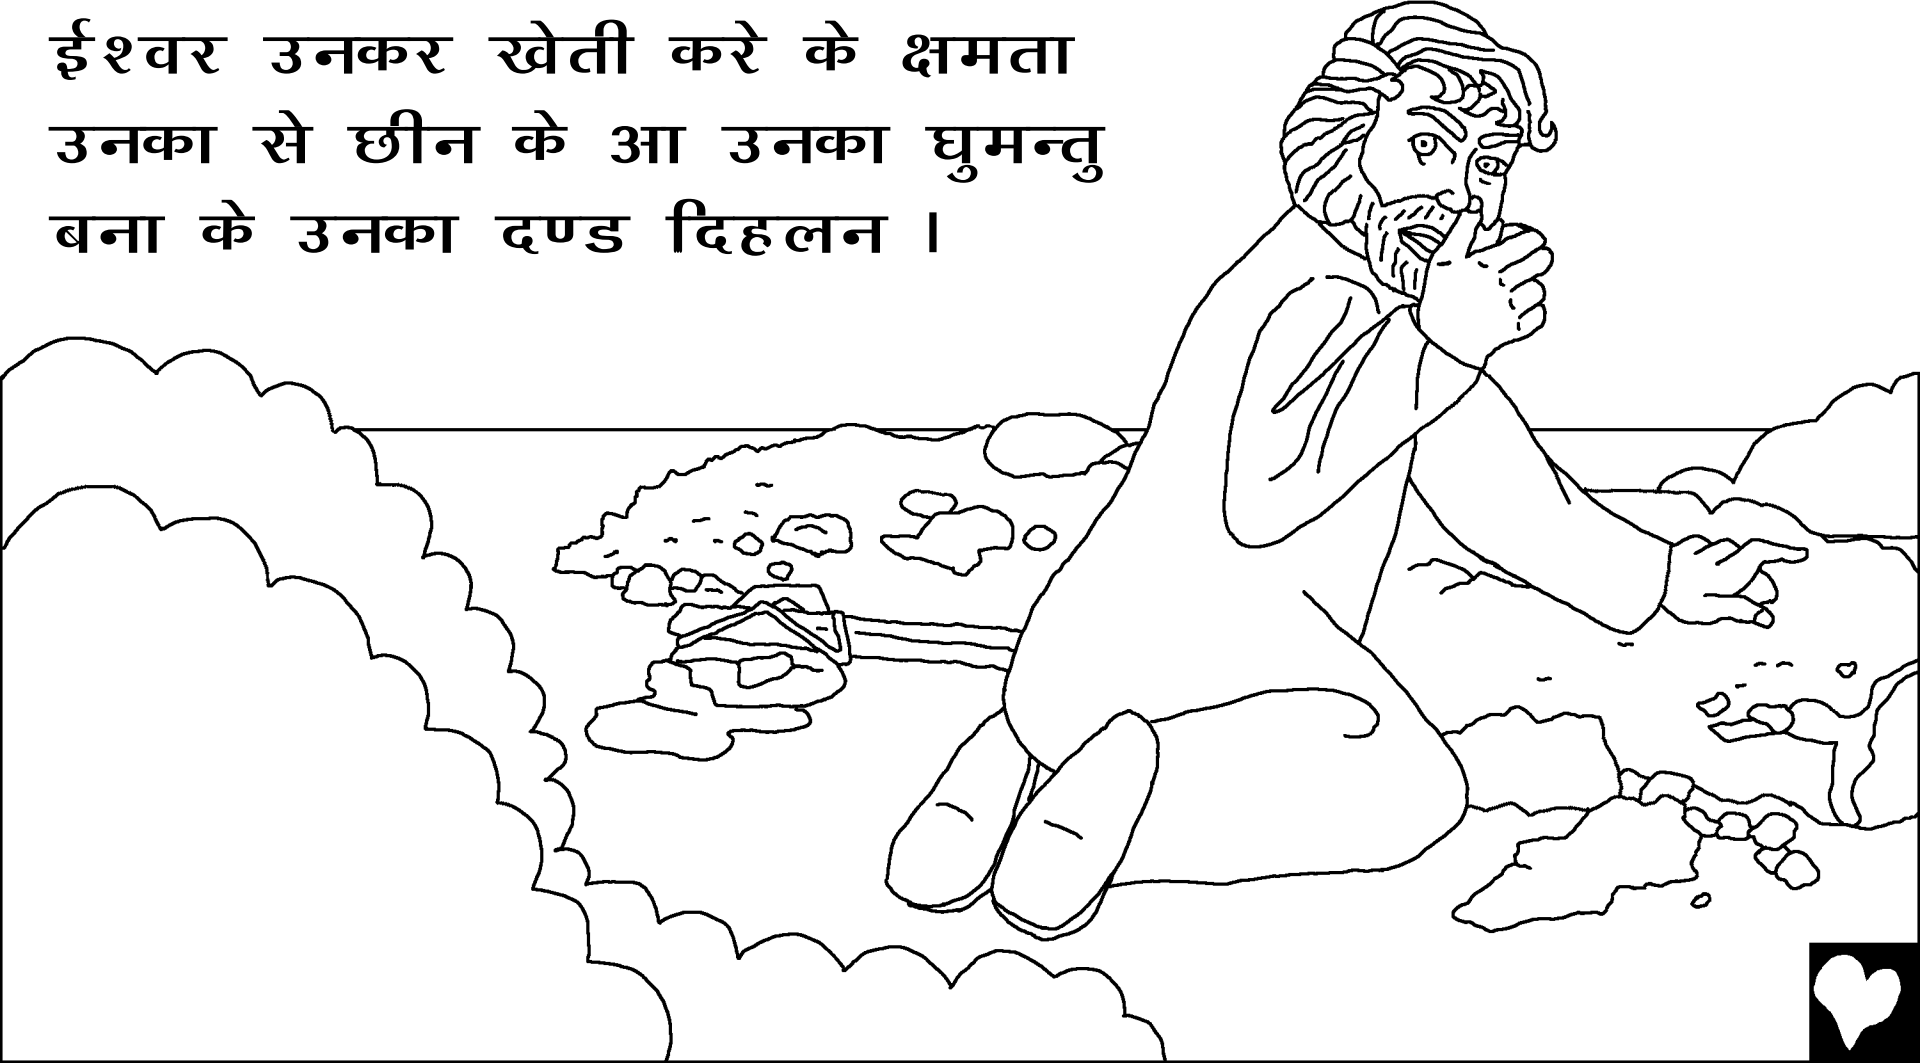 ईश्वर उनकर खेती करे के क्षमता
उनका से छीन के आ उनका घुमन्तु
बना के उनका दण्ड दिहलन ।